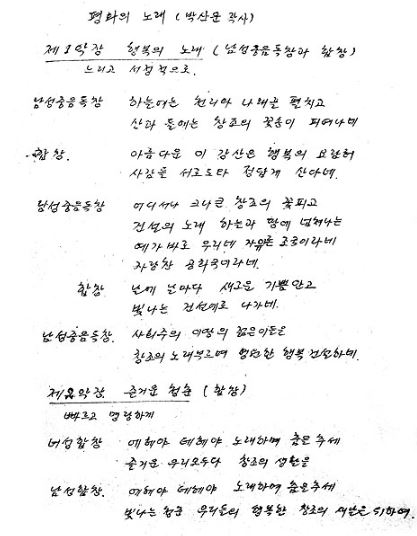 평화의 노래 (박산운 작사)
제1악장 행복의 노래 (남성중음독창과 합창)
느리고 서정적으로.
남성중음독창 하늘에는 천리마 나래 펼치고
산과 들에는 창조의 꽃숲이 피여나네
합창. 아름다운 이 강산은 행복의 요람
사람들 서로도와 정답게 산다네.
남성중음독창 어디서나 크나큰 창조의 꽃피고
건설의 노래 하늘과 땅에 넘쳐나는
예가 바로 우리네 자유론 조국이라네
자랑찬 공화국이라네.
합창 날에 날마다 새로운 기쁨안고
빛나는 건설에로 나가네.
남성중음독창. 사회주의 이땅의 젊은이들은
창조의 노래부르며 영원한 행복 건설하네.
제2악장 즐거운 청춘 (합창)
빠르고 명랑하게
녀성합창 에헤야 데헤야 노래하며 춤을추세
즐거운 우리모두다 창조의 생활을
남성합창. 에헤야 데헤야 노래하며 춤을추세
빛나는 청춘 우리들의 행복한 창조의 새날을 위하여.